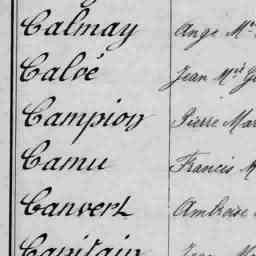 Calmay Ange M
Calvé Jean M
Campion Pierre Mar
Camu Francis M
Canvert Ambroise
Capitain Jean